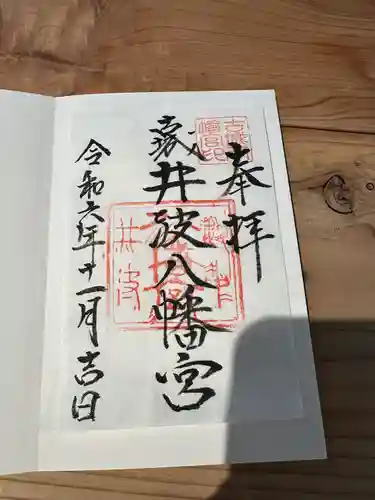 奉拝
井波八幡宮
令和六年十一月吉日